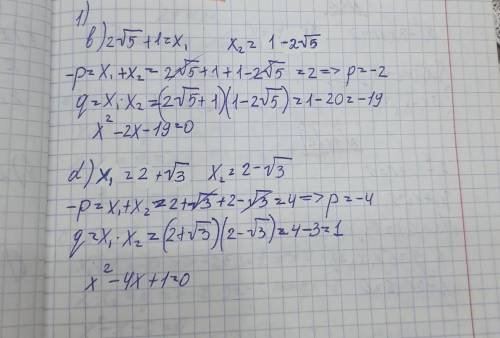 1)
в) 2√5 + 1 = x₁   x₂ = 1 - 2√5
-p = x₁ + x₂ = 2√5 + 1 + 1 - 2√5 = 2 => p = -2
q = x₁ · x₂ = (2√5 + 1)(1 - 2√5) = 1 - 20 = -19
x² - 2x - 19 = 0
d) x₁ = 2 + √3   x₂ = 2 - √3
-p = x₁ + x₂ = 2 + √3 + 2 - √3 = 4 => p = -4
q = x₁ · x₂ = (2 + √3)(2 - √3) = 4 - 3 = 1
x² - 4x + 1 = 0